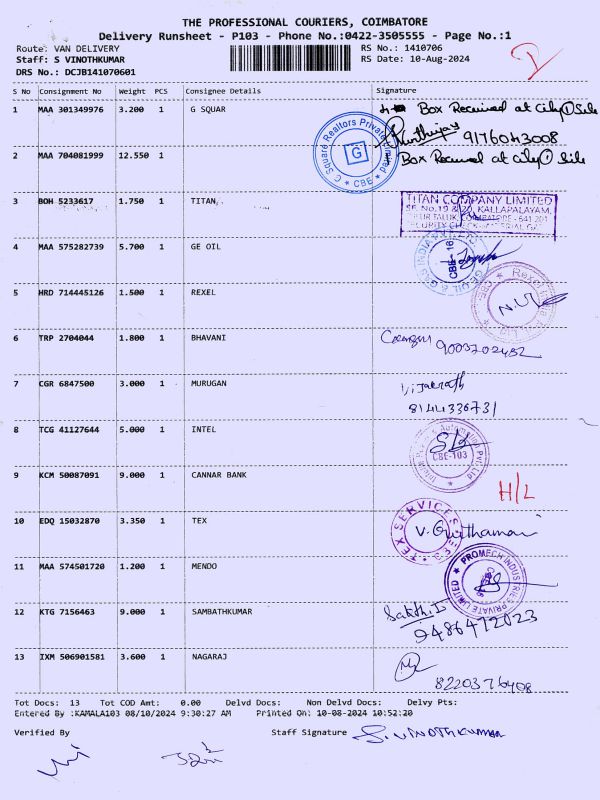 THE PROFESSIONAL COURIERS, COIMBATORE
Delivery Runsheet - P103 - Phone No.:0422-3505555 - Page No.:1
Route: VAN DELIVERY RS No.: 1410706
Staff: S VINOTHKUMAR RS Date: 10-Aug-2024
DRS No.: DCJB141070601
S No Consignment No Weight PCS Consignee Details Signature
1 MAA 301349976 3.200 1 G SQUAR Box Received at City 1 Site
9176043008
G Square Realtors Private Limited G CBE
2 MAA 704081999 12.550 1 Box Received at City 1 Site
3 BOH 5233617 1.750 1 TITAN,
TITAN COMPANY LIMITED
SF. No. 19 & 20, KALLAPALAYAM,
COIMBATORE - 641 201
4 MAA 575282739 5.700 1 GE OIL
5 HRD 714445126 1.500 1 REXEL
N.U
6 TRP 2704044 1.800 1 BHAVANI
9003702452
7 CGR 6847500 3.000 1 MURUGAN
8144336731
8 TCG 41127644 5.000 1 INTEL
CBE-103
9 KCM 50087091 9.000 1 CANNAR BANK H/L
10 EDQ 15032870 3.350 1 TEX
TEX SERVICES
11 MAA 574501720 1.200 1 MENDO
PROMECH INDUSTRIES PRIVATE LIMITED
12 KTG 7156463 9.000 1 SAMBATHKUMAR
9486472023
13 IXM 506901581 3.600 1 NAGARAJ
8220376408
Tot Docs: 13 Tot COD Amt: 0.00 Delvd Docs: Non Delvd Docs: Delvy Pts:
Entered By :KAMALA103 08/10/2024 9:30:27 AM Printed On: 10-08-2024 10:52:20
Verified By Staff Signature S.VINOTHKUMAR